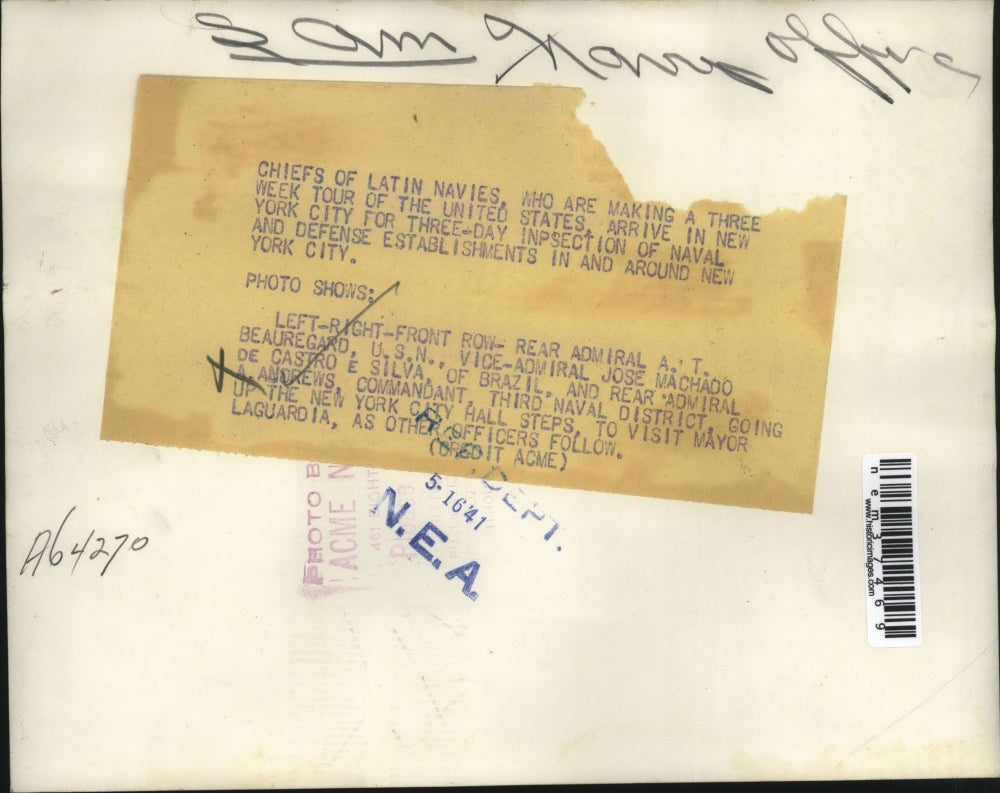 CHIEFS OF LATIN NAVIES, WHO ARE MAKING A THREE
WEEK TOUR OF THE UNITED STATES, ARRIVE IN NEW
YORK CITY FOR THREE-DAY INPSECTION OF NAVAL
AND DEFENSE ESTABLISHMENTS IN AND AROUND NEW
YORK CITY.
PHOTO SHOWS:
LEFT-RIGHT-FRONT ROW- REAR ADMIRAL A. T.
BEAUREGARD, U.S.N., VICE-ADMIRAL JOSE MACHADO
DE CASTRO E SILVA, OF BRAZIL, AND REAR ADMIRAL
A. ANDREWS, COMMANDANT, THIRD NAVAL DISTRICT, GOING
UP THE NEW YORK CITY HALL STEPS, TO VISIT MAYOR
LAGUARDIA, AS OTHER OFFICERS FOLLOW.
(CREDIT ACME)
DEPT.
5-16'41
N.E.A.
PHOTO B
ACME N
461
A64270
nem37469
www.historicimages.com